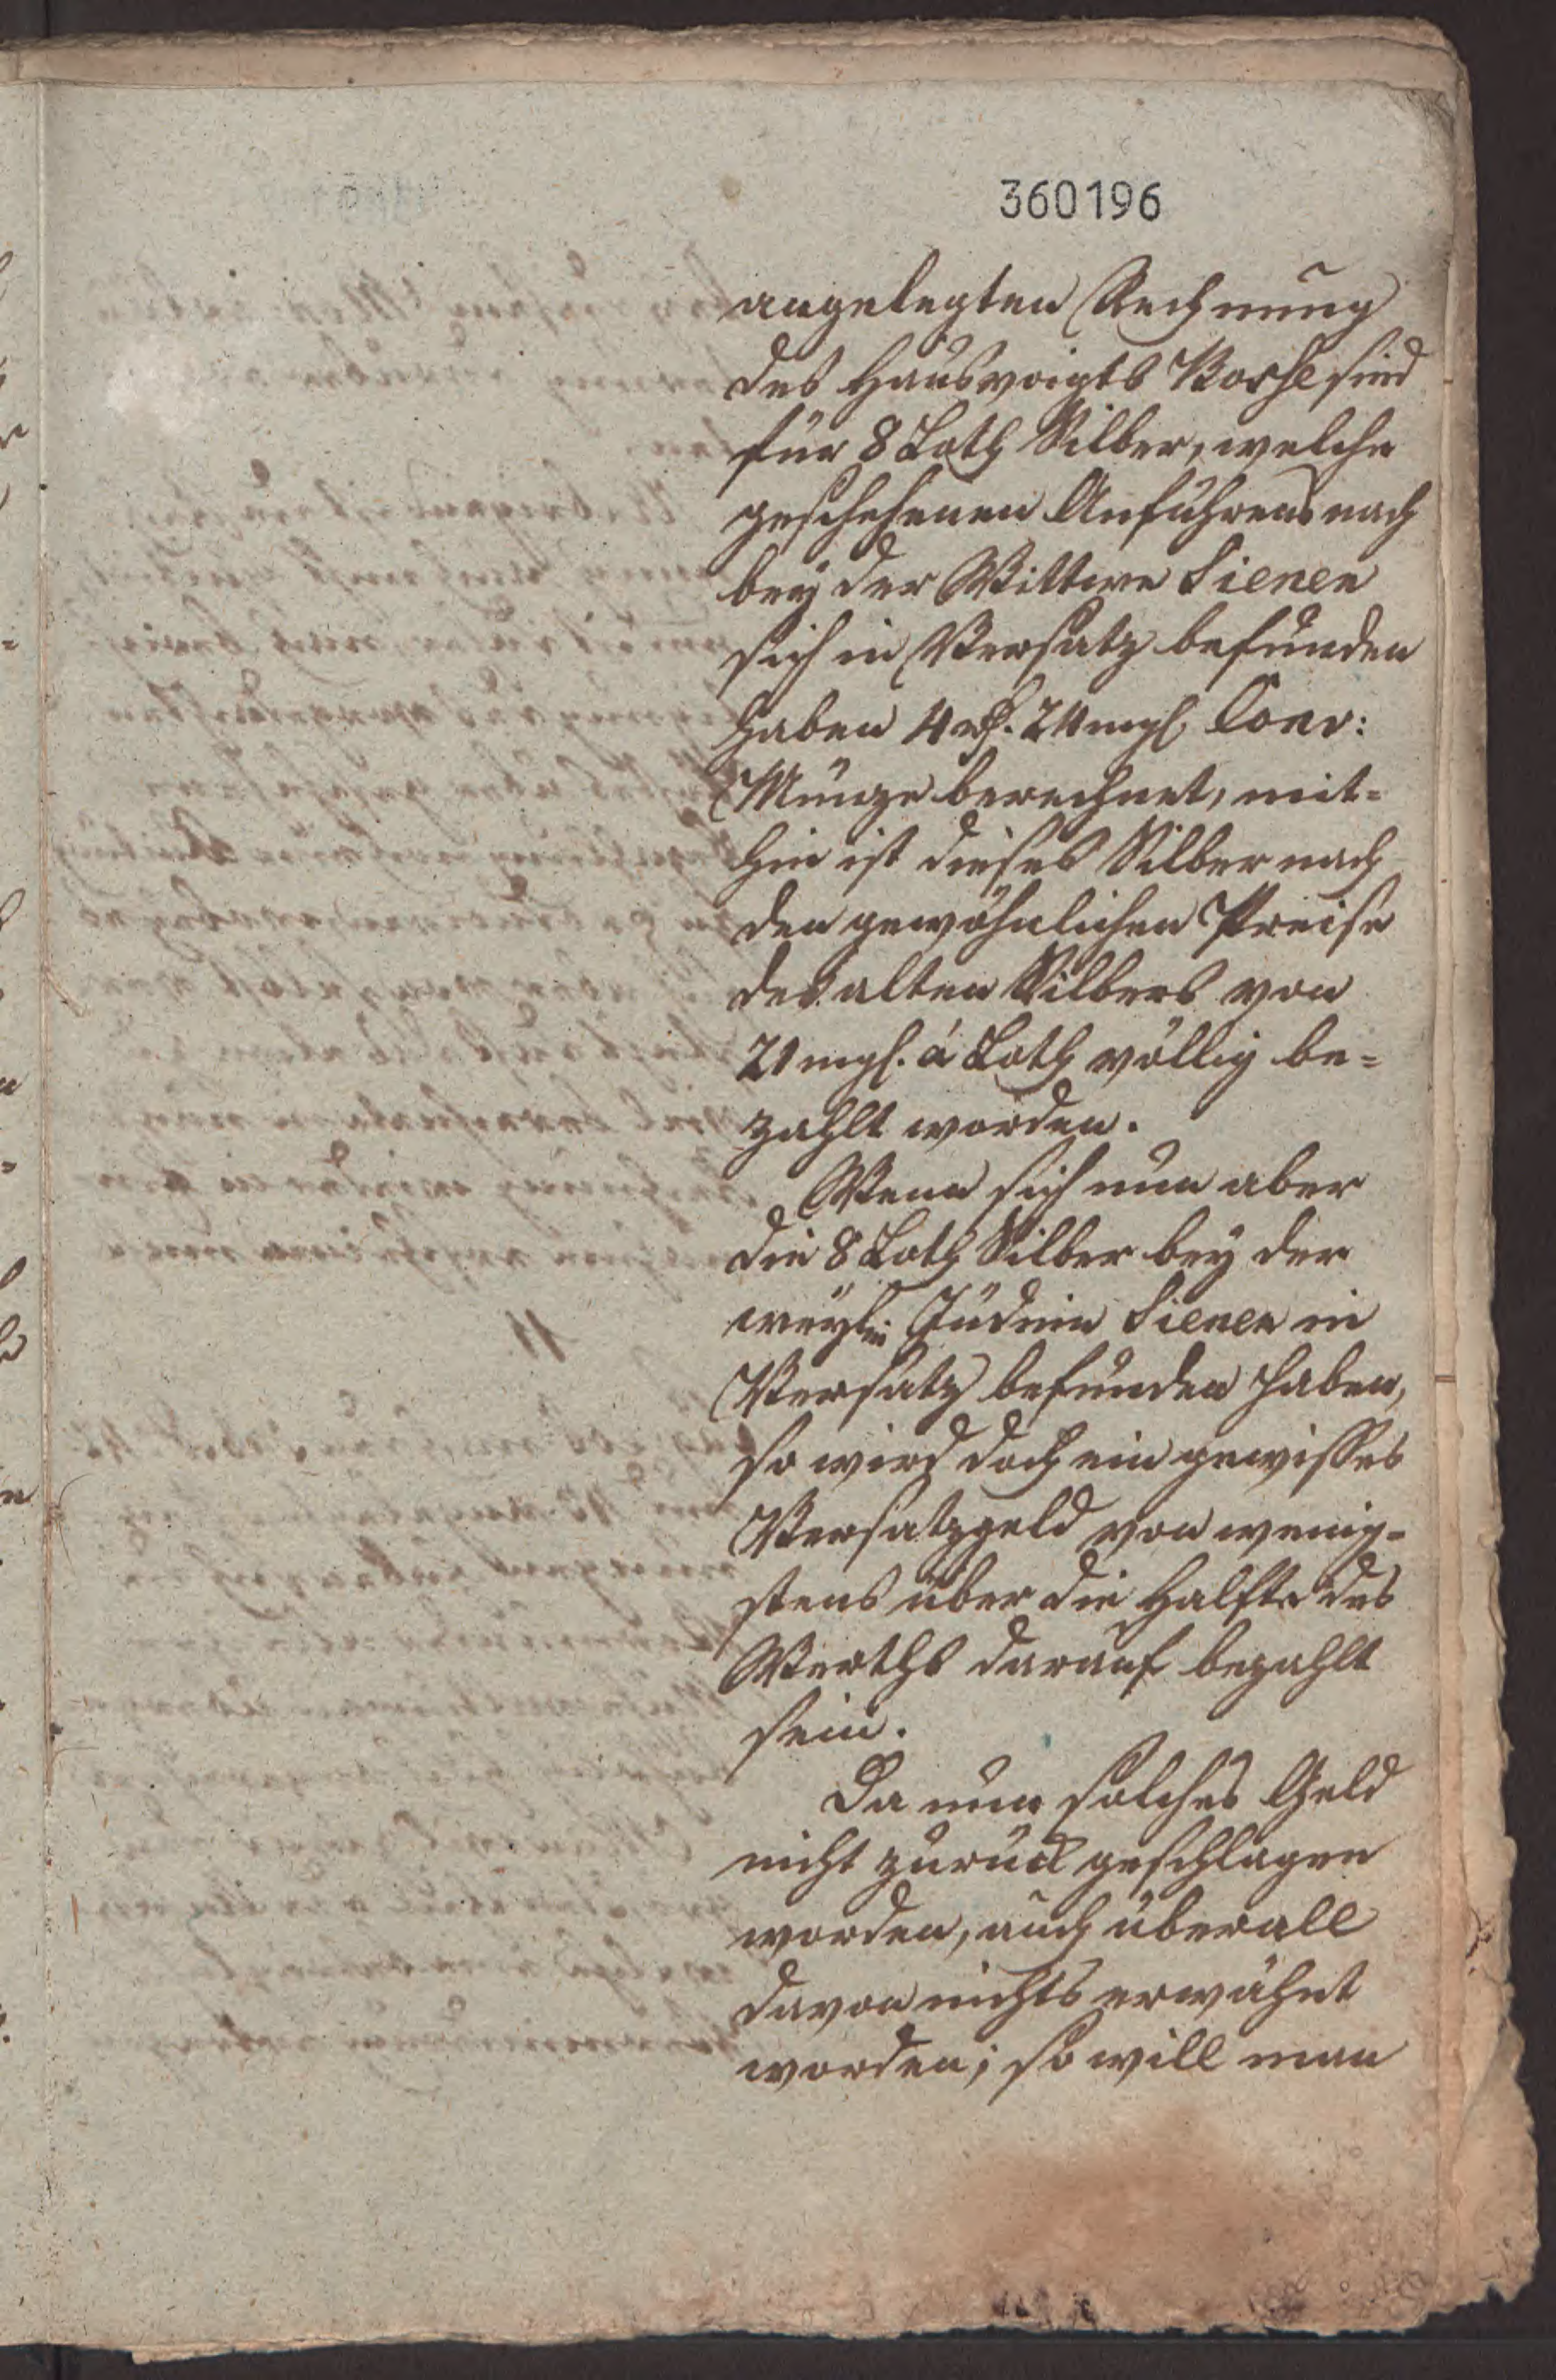 360196
angelegten Rechnung
des Hausvoigts Bosse sind
für 8 Loth Silber, welche
geschehenen Anführens nach
bey der Wittwe Sienen
sich in Versatz befunden
haben 4 rthl. 24 mgl. Conv:
Münze berechnet, mit=
hin ist dieses Silber nach
den gewöhnlichen Preise
des alten Silbers von
21 mgl. á Loth völlig be=
zahlt worden.
Wenn sich nun aber
die 8 Loth Silber bey der
weyl: Jüdin Sienen in
Versatz befunden haben,
so wird doch ein gewisses
Versatzgeld von wenig=
stens über die Halfte des
Werths darauf bezahlt
sein.
Da nun solches Geld
nicht zurück geschlagen
worden, auch überall
davon nichts erwähnt
worden; so will man